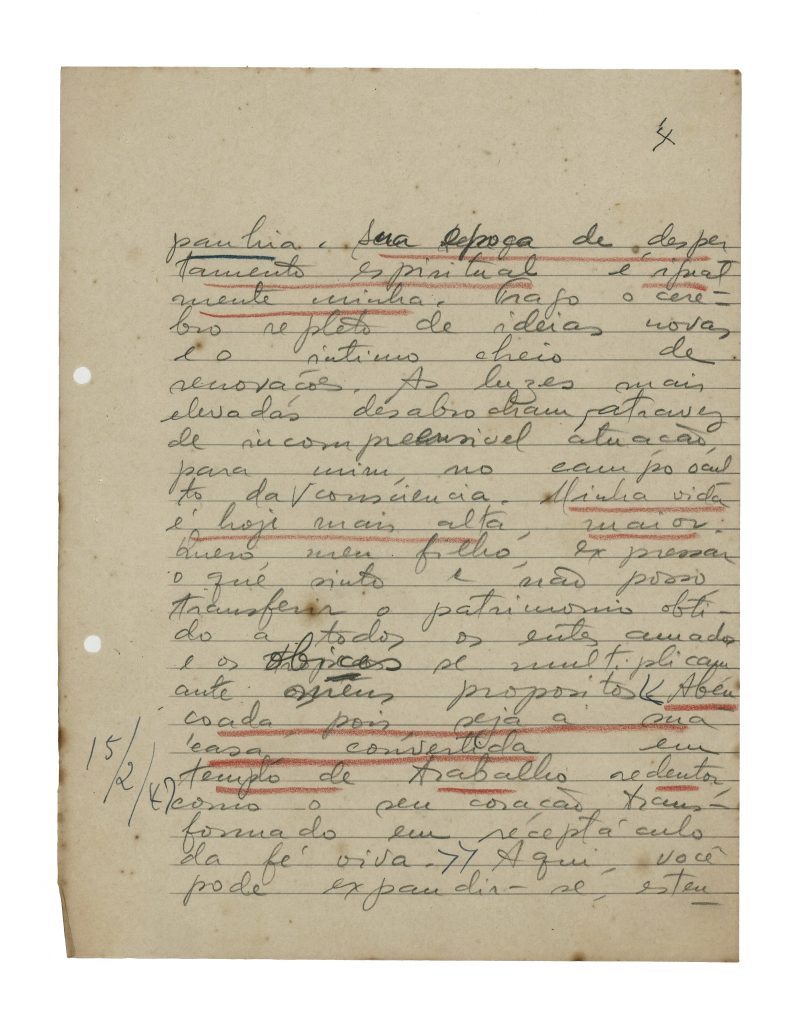 4
panhia. Sua epoca de desper
tamento espiritual é igual
mente minha. Trago o cere-
bro repleto de ideias novas
e o intimo cheio de
renovações. As luzes mais
elevadas desabrocham, atravez
de incompreensivel atuação,
para mim, no campo ocul
to da consciencia. Minha vida
é hoje mais alta, maior.
Quero, meu filho, expressar
o que sinto e não posso,
transferir o patrimonio obti-
do a todos os entes amados
e os obices se multiplicam
ante meus propositos. << Aben
çoada, pois seja a sua
casa, convertida em
templo de trabalho redentor,
como o seu coração trans-
formado em receptáculo
da fé viva. >> Aqui, você
pode expandir-se, esten
15/2/47